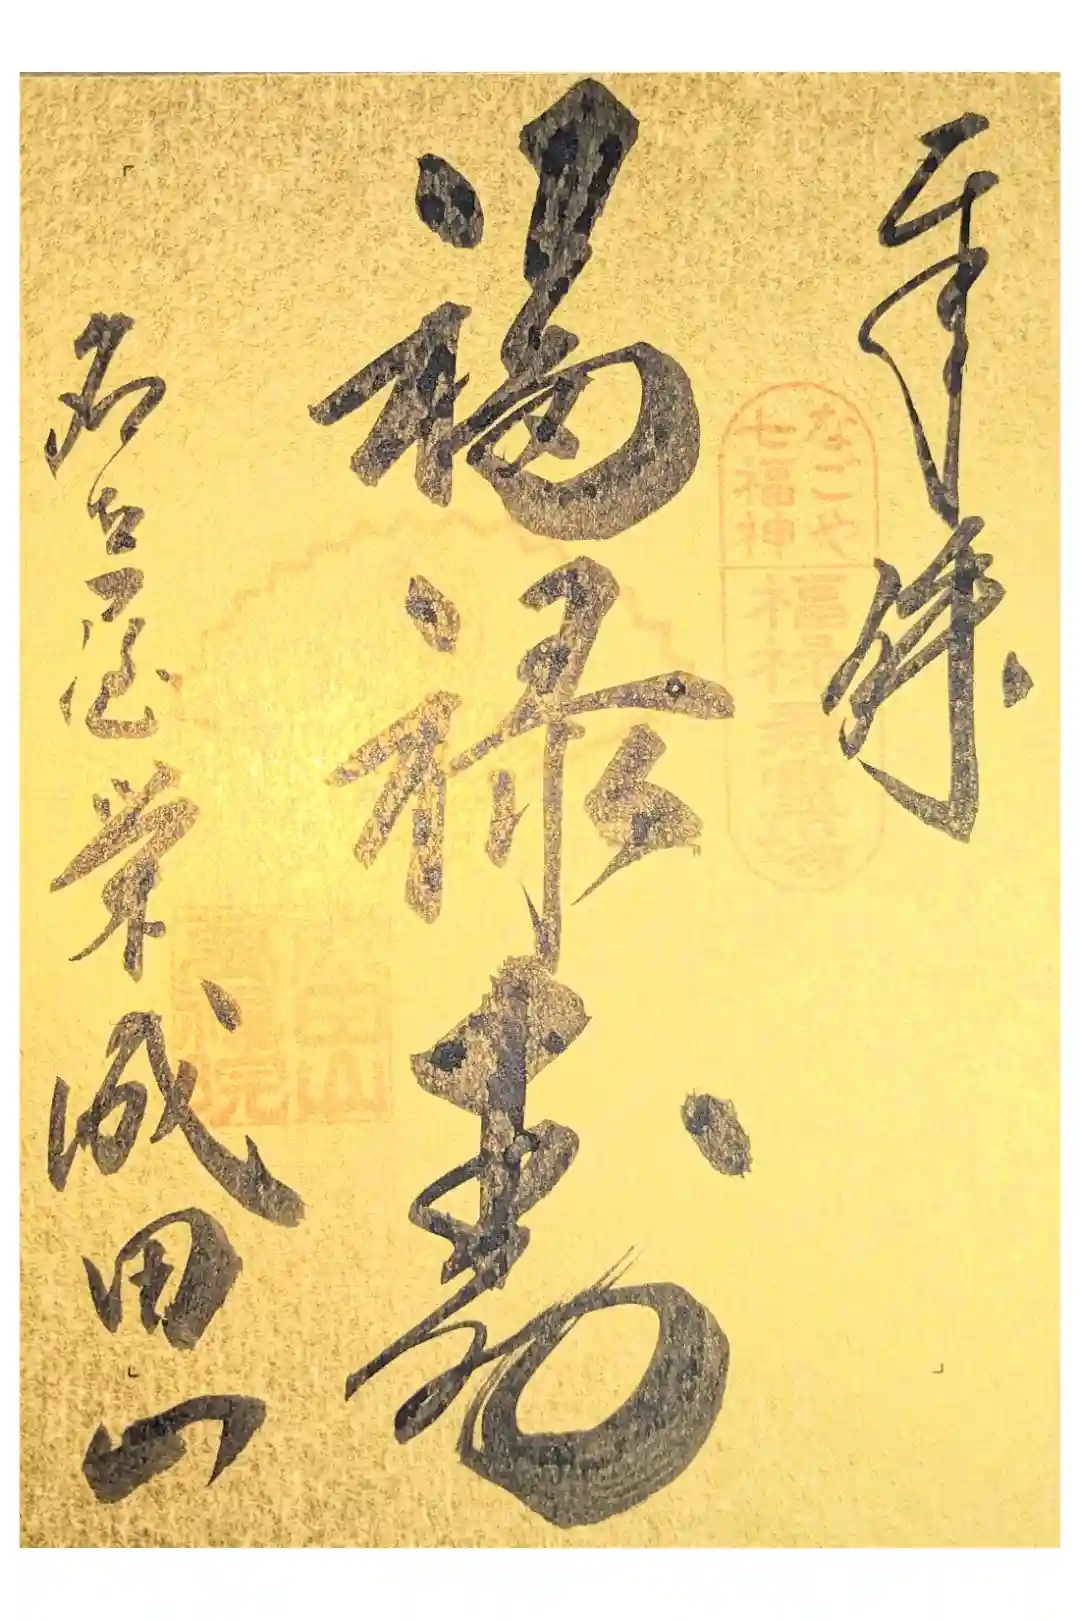 奉拝
なごや
七福神
福禄寿
福禄寿
名古屋栄成田山